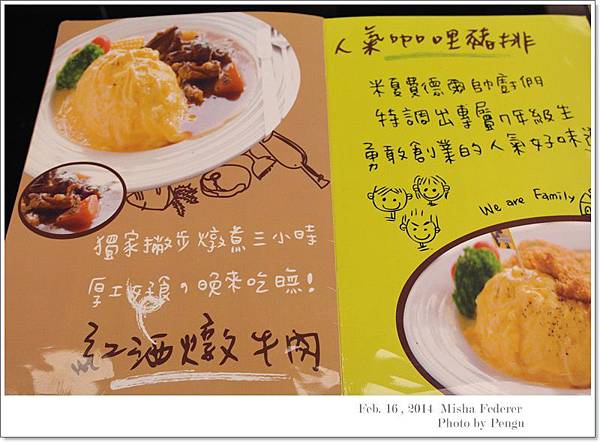 獨家撇步燉煮三小時
厚工呀餐，晚來吃嘸！
紅酒燉牛肉
人氣咖哩豬排
米夏費德爾帥廚們
特調出專屬7年級生
勇敢創業的人氣好味道
We are Family
Feb. 16 , 2014 Misha Federer
Photo by Pengu